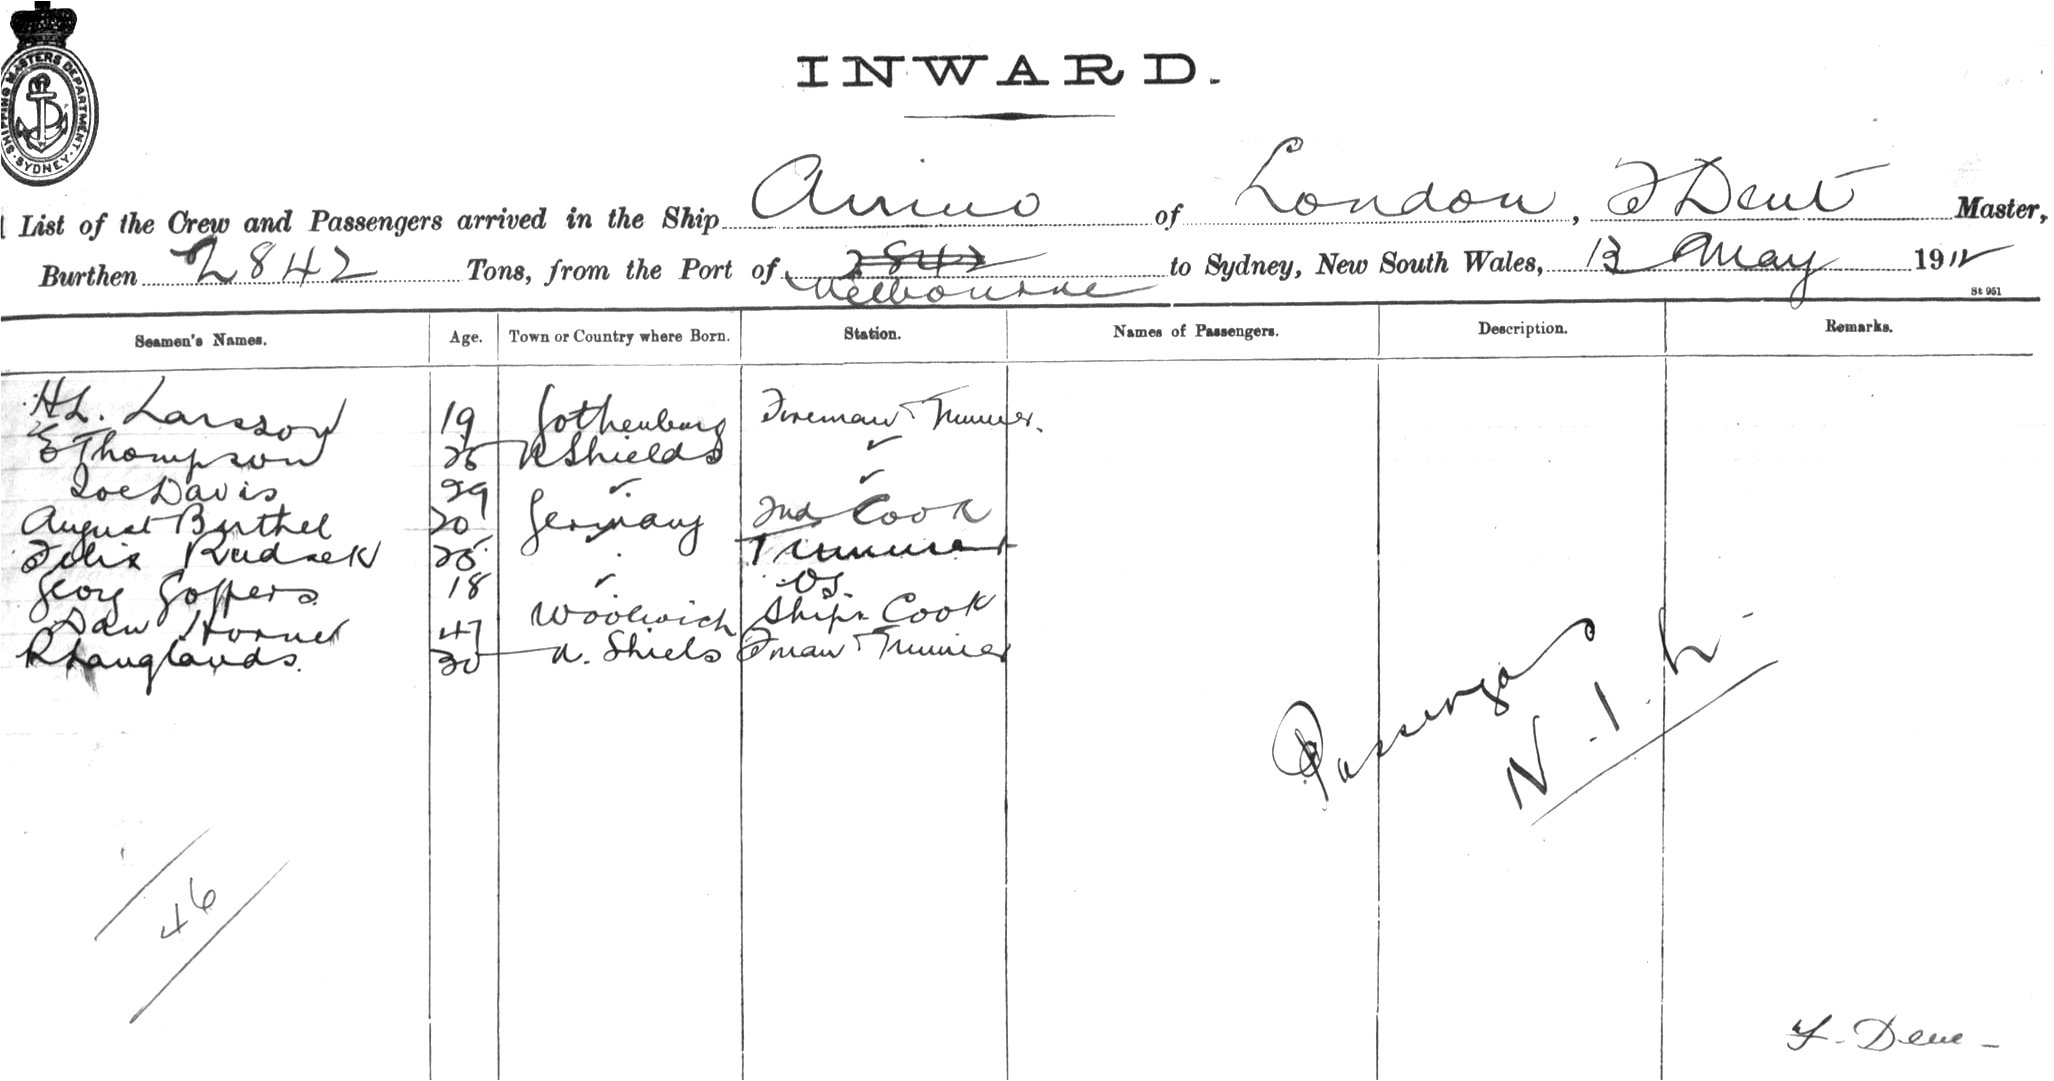 SHIPPING MASTERS DEPARTMENT · SYDNEY ·
INWARD.
List of the Crew and Passengers arrived in the Ship Arino of London, F Dent Master,
Burthen 2842 Tons, from the Port of 2842 Melbourne to Sydney, New South Wales, 13 May 1912
St 951
Seamen's Names. Age. Town or Country where Born. Station. Names of Passengers. Description. Remarks.
H L. Larsson 19 Gothenburg Fireman Trimmer.
E Thompson 25 N Shields ✓
Joe Davis 29 ✓ ✓
August Barthel 20 Germany 2nd Cook
Felix Rudsek 25 ✓ Trimmer
Georg Goffers 18 ✓ OS.
Dan Horner 47 Woolwich Ships Cook
R Langlands. 30 N. Shiels Fman Trimmer
Passengers
N.I.L
46
F. Dent